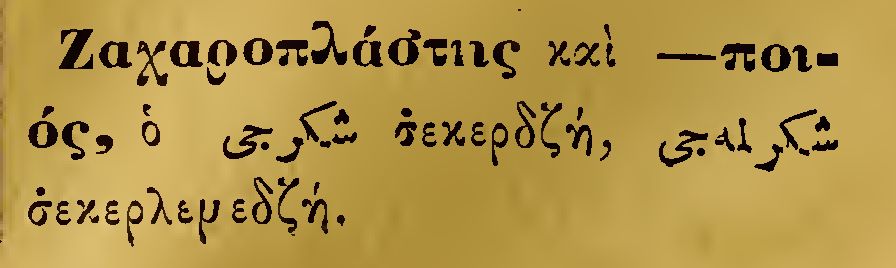 Ζαχαροπλάστης καὶ —ποι-
ός, ὁ شكرجی σ̇εκερδζή, شكرلمه‌جی
σ̇εκερλεμεδζή.